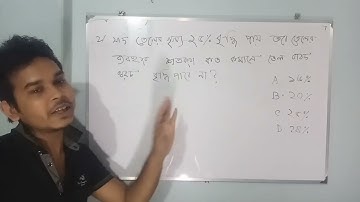 ২। যদি তেলের মূল্য ২৫% বৃদ্ধি পায় তবে তেলের
ব্যবহার শতকরা কত কমালে তেল বাবদ
খরচ বৃদ্ধি পাবে না?
A. ১৬%
B. ২০%
C. ২৫%
D. ২৪%